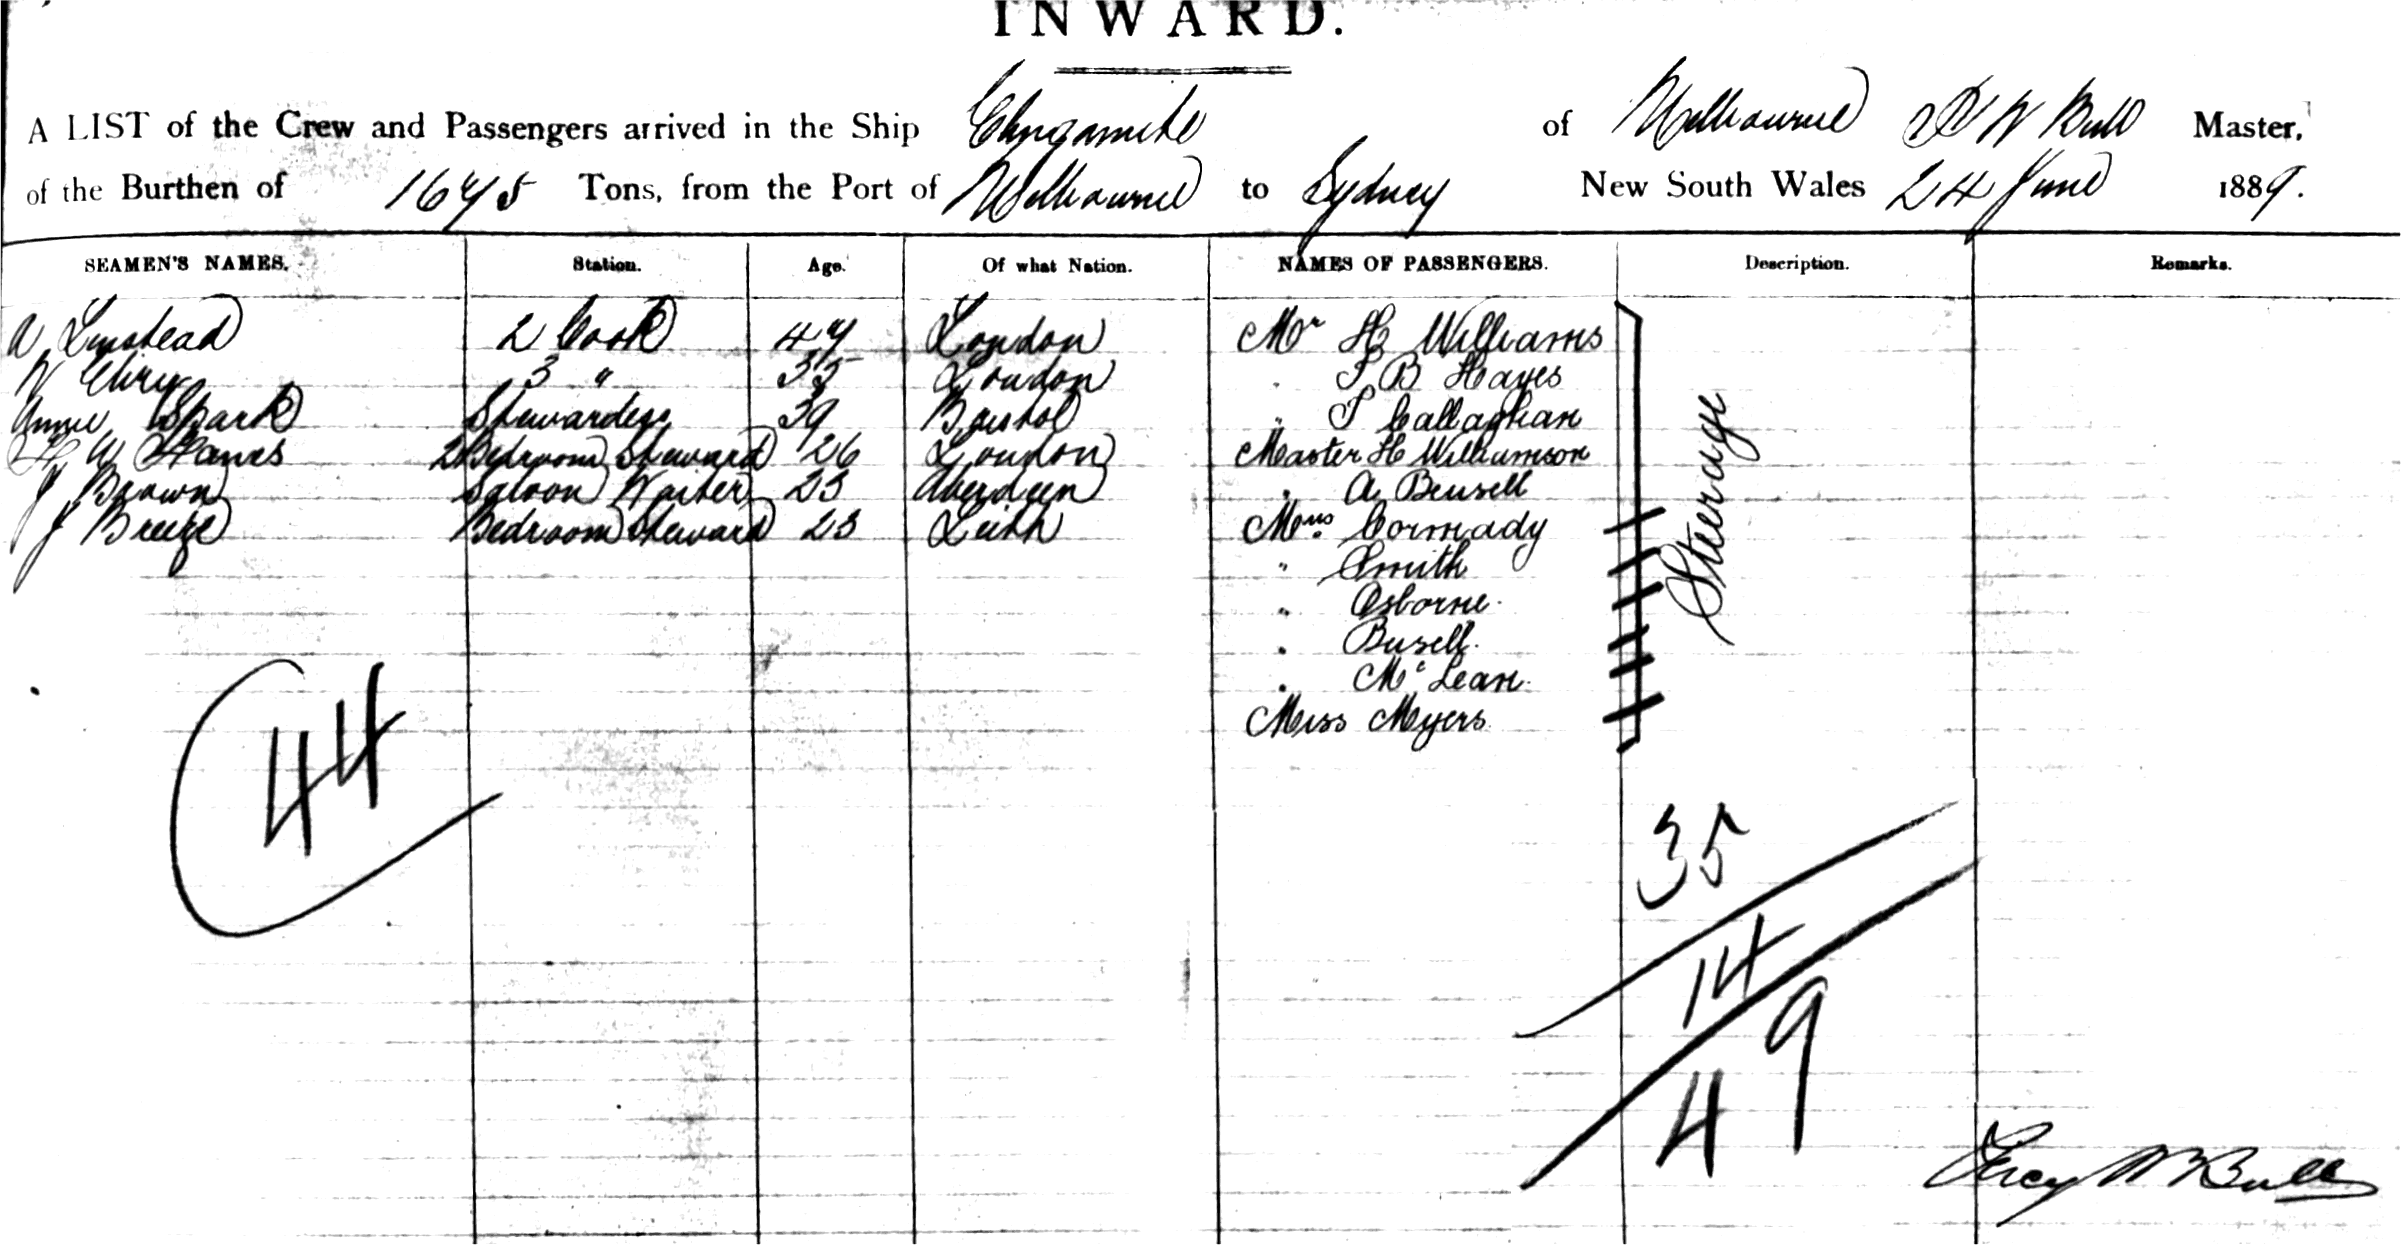 INWARD.
A LIST of the Crew and Passengers arrived in the Ship Elingamite of Melbourne P W Bull Master,
of the Burthen of 1675 Tons, from the Port of Melbourne to Sydney New South Wales 24 June 1889.
SEAMEN'S NAMES. Station. Age. Of what Nation. NAMES OF PASSENGERS. Description. Remarks.
Linstead 2 Cook 47 London Mr H Williams
W 3 " 35 London " B Hayes
Annie Spark Stewardess 39 Bristol " Callaghan
W 2 Bedroom Steward 26 London Master H Williamson
J Brown Saloon Waiter 23 Aberdeen " A. Beusell
J Breeze Bedroom Steward 23 Leith Mrs Cormady
" Smith
" Osborne
" Busell
" McLean
Miss Myers
Steerage
44
35
14
49
Percy W Bull